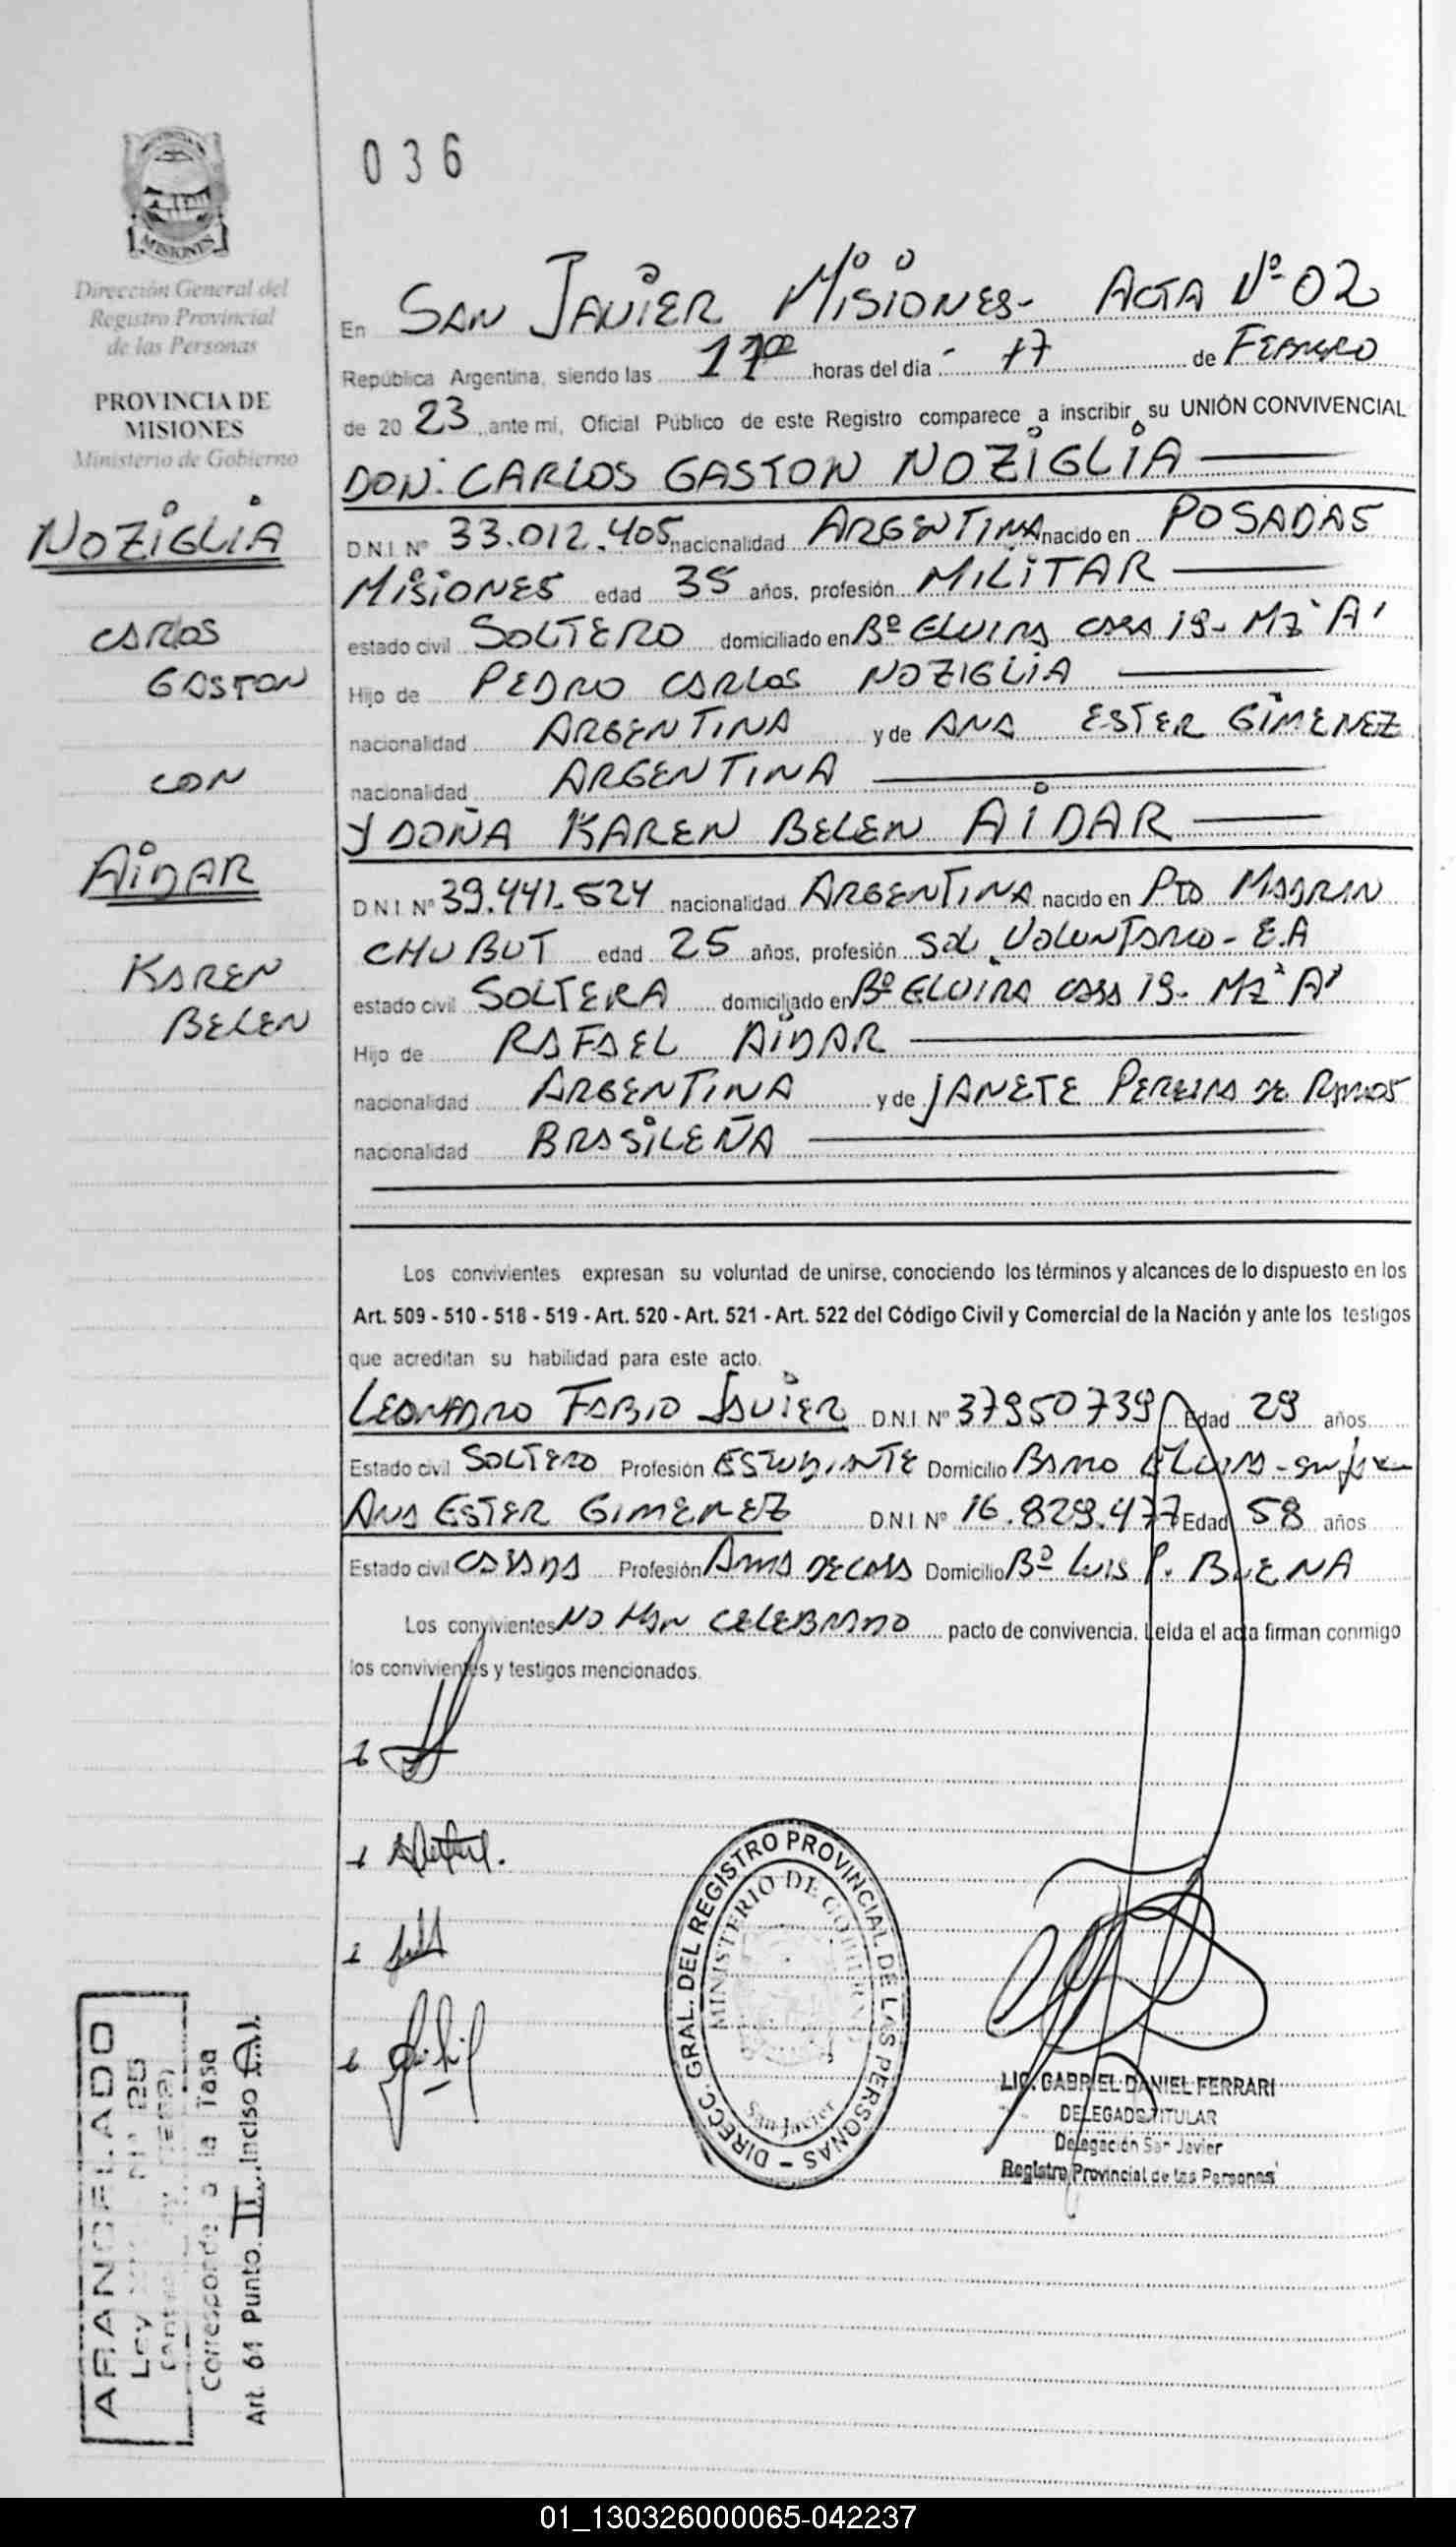 036
MISIONES
Dirección General del
Registro Provincial
de las Personas
PROVINCIA DE
MISIONES
Ministerio de Gobierno
NOZIGLIA
CARLOS
GASTON
CON
AIDAR
KAREN
BELEN
En SAN JAVIER MISIONES- ACTA Nº 02
República Argentina, siendo las 11ºº horas del día 17 de FEBRERO
de 2023, ante mí, Oficial Público de este Registro comparece a inscribir su UNIÓN CONVIVENCIAL
DON: CARLOS GASTON NOZIGLIA
D.N.I. Nº 33.012.405 nacionalidad ARGENTINA nacido en POSADAS
MISIONES edad 35 años, profesión MILITAR
estado civil SOLTERO domiciliado en Bº ELVIRA CASA 19- Mz "A"
Hijo de PEDRO CARLOS NOZIGLIA
nacionalidad ARGENTINA y de ANA ESTER GIMENEZ
nacionalidad ARGENTINA
Y DOÑA KAREN BELEN AIDAR
D.N.I. Nº 39.441.524 nacionalidad ARGENTINA nacido en PTO MADRIN
CHUBUT edad 25 años, profesión SOL VOLUNTARIO - E.A
estado civil SOLTERA domiciliado en Bº ELVIRA CASA 19- Mz "A"
Hijo de RAFAEL AIDAR
nacionalidad ARGENTINA y de JANETE PEREIRA DE RAMOS
nacionalidad BRASILEÑA
Los convivientes expresan su voluntad de unirse, conociendo los términos y alcances de lo dispuesto en los
Art. 509 - 510 - 518 - 519 - Art. 520 - Art. 521 - Art. 522 del Código Civil y Comercial de la Nación y ante los testigos
que acreditan su habilidad para este acto.
LEONARDO FABIO JAVIER D.N.I. Nº 37950739 Edad 29 años
Estado civil SOLTERO Profesión ESTUDIANTE Domicilio BARRIO ELVIRA -
ANA ESTER GIMENEZ D.N.I. Nº 16.829.477 Edad 58 años
Estado civil CASADA Profesión AMA DE CASA Domicilio Bº LUIS P. BUENA
Los convivientes NO HAN CELEBRADO pacto de convivencia. Leida el acta firman conmigo
los convivientes y testigos mencionados.
DIRECC. GRAL. DEL REGISTRO PROVINCIAL DE LAS PERSONAS -
MINISTERIO DE GOBIERNO
San Javier
LIC. GABRIEL DANIEL FERRARI
DELEGADO TITULAR
Delegación San Javier
Registro Provincial de las Personas
ARANCELADO
Ley
corresponde a la Tasa
Art. 61 Punto II Inciso A)
01_130326000065-042237